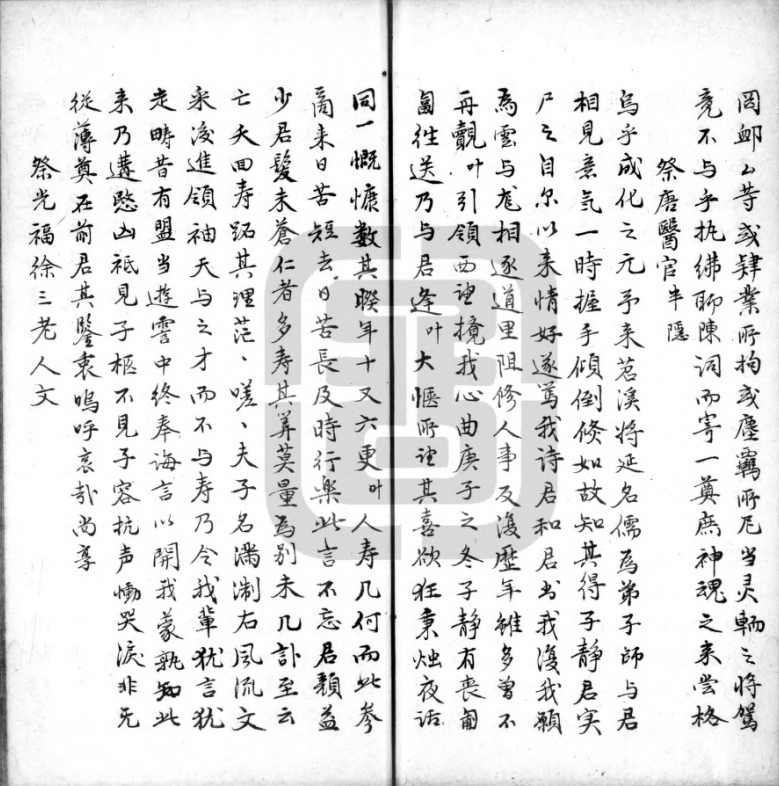 罔卹山等或肄業所拘或塵羈所厄当灵輀之将駕
竟不与乎执绋聊陳词而寄一奠庶神魂之来尝格
祭唐醫官半隱
烏乎成化之元予来苕溪将延名儒為弟子師与君
相見意氣一時握手傾倒倐如故知其得子静君实
尸之自尔以来情好遂篤我詩君和君出我浚我願
為雲与尨相逐道里阻修人事反浚歴年雖多曾不
再覿叶引領西望搅我心曲庚子之冬子静有喪匍
匐徃送乃与君逢叶大惬所望其喜欲狂秉烛夜话
同一慨慷数其暌年十又六更叶人寿几何而此参
商来日苦短去日苦長及時行樂此言不忘君顏益
少君髮未蒼仁者多寿其筭莫量為别未几訃至云
亡夭回寿跖其理茫、嗟、夫子名滿淛右風流文
采浚進領袖天与之才而不与寿乃令我輩犹言犹
走畴昔有盟当遊霅中终奉誨言以開我蒙孰知此
来乃遘愍凶祗見子柩不見子容抗声慟哭淚非无
從薄奠在前君其鑒衷嗚呼哀哉尚享
祭光福徐三老人文